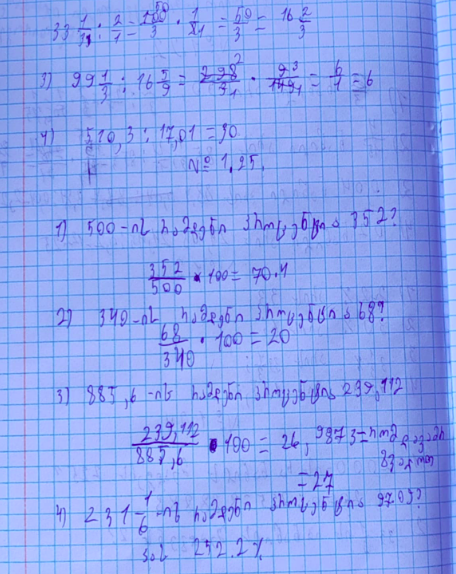 33 1/3 : 2/1 = 100/3 · 1/2 = 50/3 = 16 2/3
3) 99 1/3 : 16 5/9 = 298/3 · 9/149 = 6/1 = 6
4) 510,3 : 17,01 = 30
№ 1.25.
1) 500-ის რამდენი პროცენტია 352?
352/500 · 100 = 70.4
2) 340-ის რამდენი პროცენტია 68?
68/340 · 100 = 20
3) 885,6-ის რამდენი პროცენტია 239,112
239,112/885,6 · 100 = 26,9873=
=27
4) 231 1/6-ის რამდენი პროცენტია
242.2%